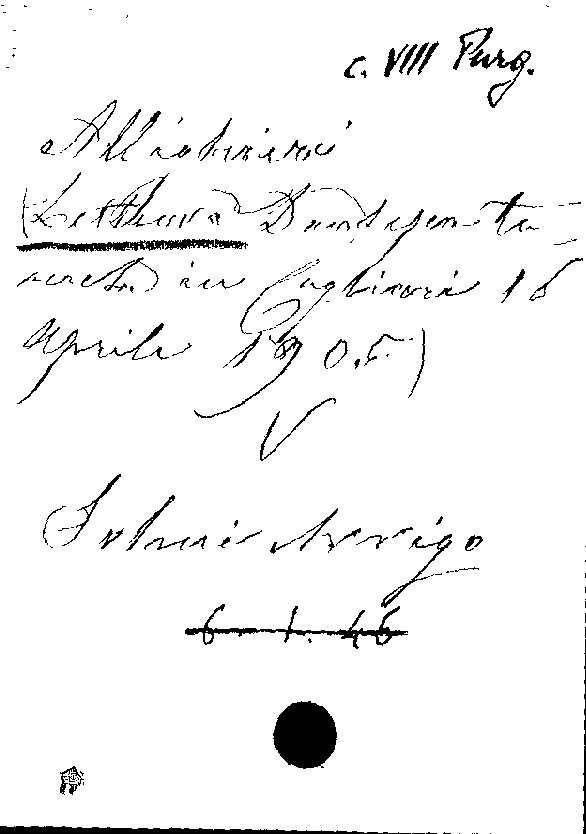 c. VIII Purg.
Allighieri
(Lettura Dantesca te-
nuta in Cagliari 16
Aprile 1905)
V
Solmi Arrigo
6. 1. 46